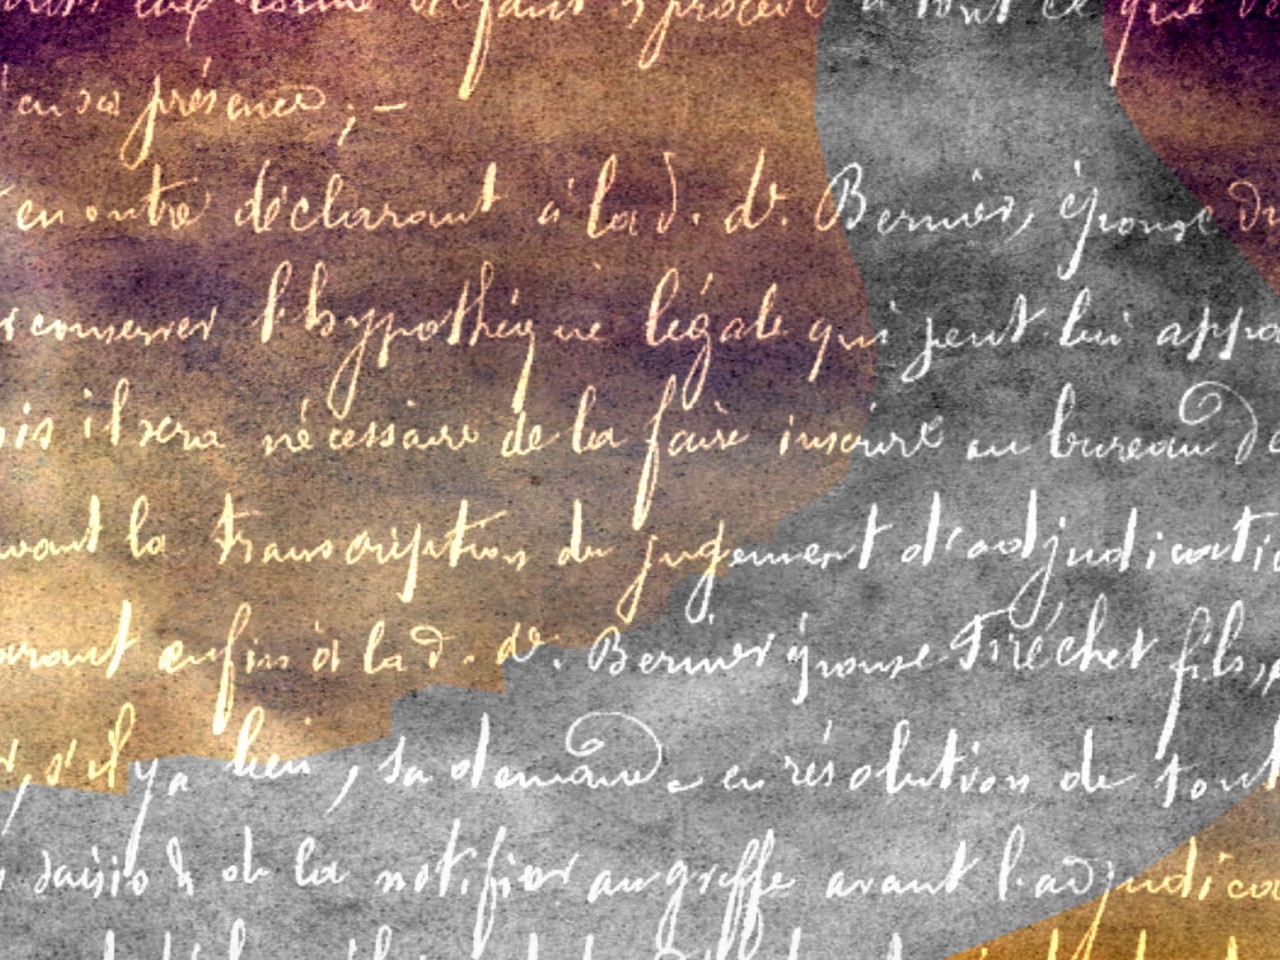 défaut procédé à tout ce que
en sa présence ; —
en outre déclarant à la d. de. Bernier, épouse du
conserver l'hypothèque légale qui peut lui appa
is il sera nécessaire de la faire inscrire au bureau de
vant la transcription du jugement d'adjudicati
arant enfin à la d. de. Bernier épouse Fréchet fils,
s'il y a lieu, sa demande en résolution de tout
saisis & de la notifier au greffe avant l'adjudica